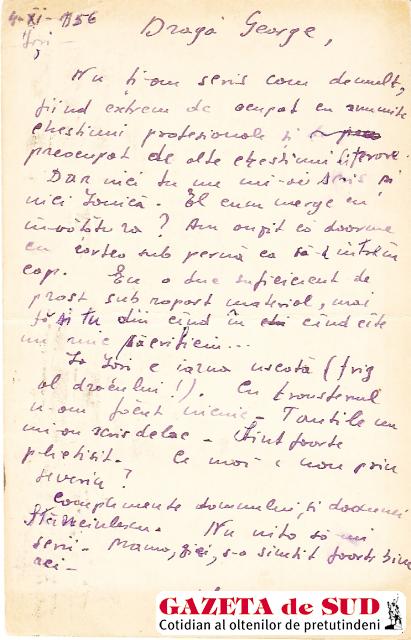 4-XI-956
Iași
Dragă George,
Nu ți-am scris cam demult,
fiind extrem de ocupat cu anumite
chestiuni profesionale și
preocupat de alte chestiuni literare.
Dar nici tu nu mi-ai scris și
nici Ionică. El cum merge cu
învățătura? Am auzit că doarme
cu cartea sub pernă ca să-i intre în
cap. Eu o duc suficient de
prost sub raport material, mai
fă și tu din cînd în cînd cîte
un mic sacrificiu...
La Iași e iarnă uscată (frig
al dracului!). Cu transferul
n-am făcut nimic - Tantile nu
mi-au scris deloc - Sînt foarte
plictisit. Ce mai e nou prin
Severin?
Complimente domnului și doamnei
Nu uita să-mi
scrii - Mama, zici, s-a simțit foarte bine
aci -
GAZETA de SUD
Cotidian al oltenilor de pretutindeni